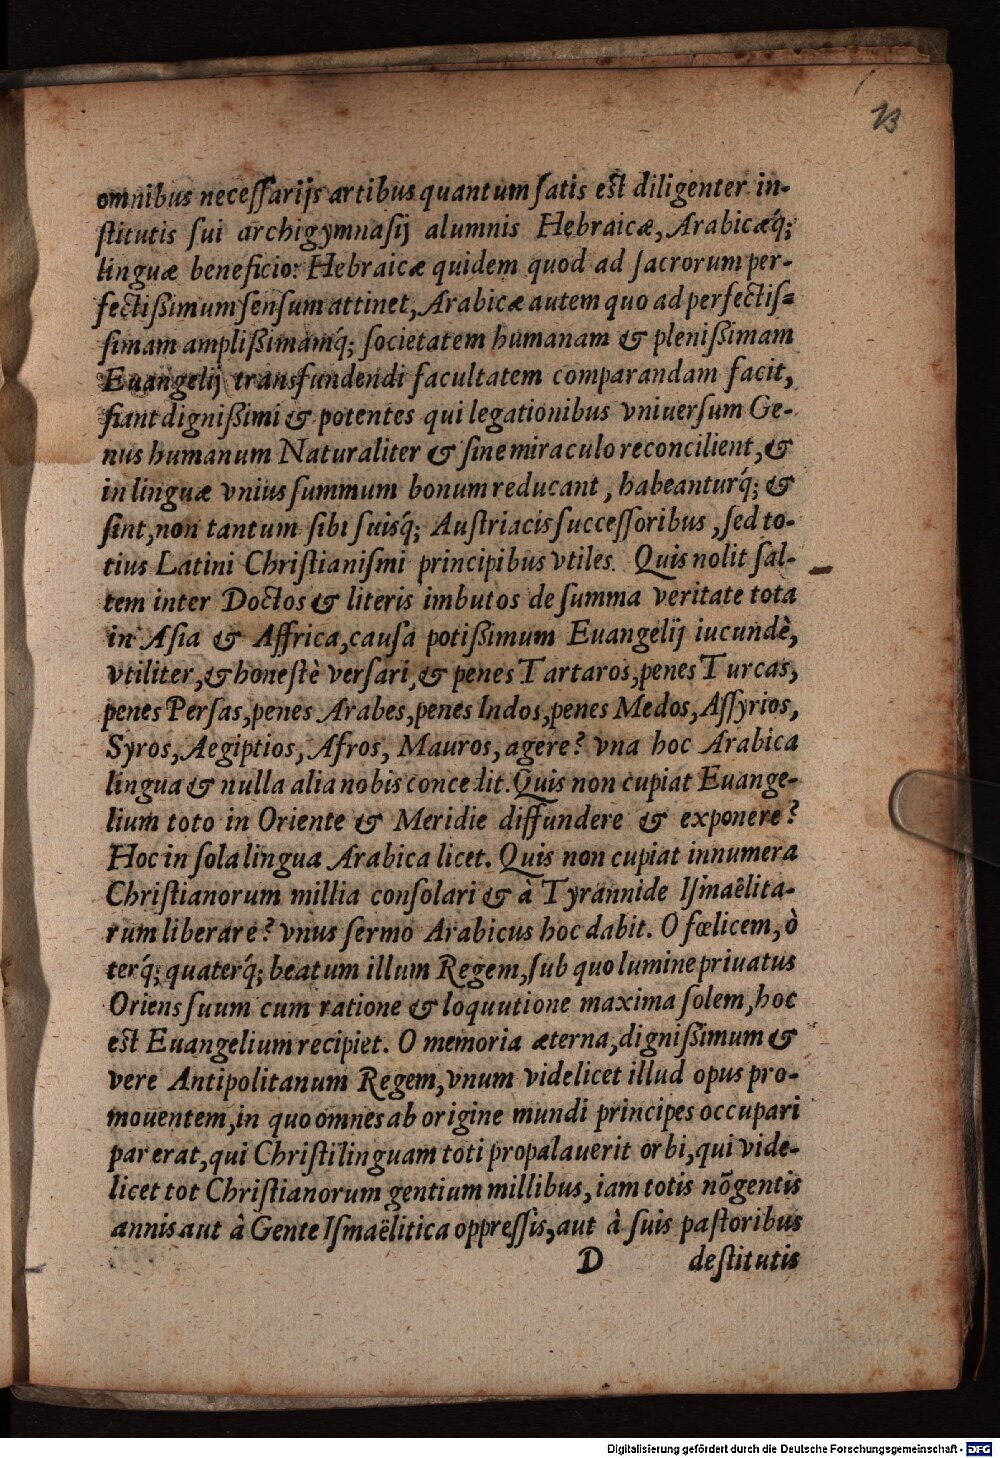 13
omnibus neceſſarijs artibus quantum ſatis eſt diligenter in-
ſtitutis ſui archigymnaſij alumnis Hebraicæ, Arabicæq́;
linguæ beneficio: Hebraicæ quidem quod ad ſacrorum per-
fectißimum ſenſum attinet, Arabicæ autem quo ad perfectiſ-
ſimam amplißimamq́; ſocietatem humanam & plenißimam
Euangelij transfundendi facultatem comparandam facit,
fiant dignißimi & potentes qui legationibus vniuerſum Ge-
nus humanum Naturaliter & ſine miraculo reconcilient, &
in linguæ vnius ſummum bonum reducant, habeanturq́; &
ſint, non tantum ſibi ſuisq́; Auſtriacis ſucceſſoribus, ſed to-
tius Latini Chriſtianiſmi principibus vtiles. Quis nolit ſal-
tem inter Doctos & literis imbutos de ſumma veritate tota
in Aſia & Affrica, cauſa potißimum Euangelij iucundè,
vtiliter, & honeſtè verſari, & penes Tartaros, penes Turcas,
penes Perſas, penes Arabes, penes Indos, penes Medos, Aſſyrios,
Syros, Aegiptios, Afros, Mauros, agere? vna hoc Arabica
lingua & nulla alia nobis concedit. Quis non cupiat Euange-
lium toto in Oriente & Meridie diffundere & exponere?
Hoc in ſola lingua Arabica licet. Quis non cupiat innumera
Chriſtianorum millia conſolari & à Tyrannide Iſmaêlita-
rum liberare? vnus ſermo Arabicus hoc dabit. O fœlicem, ò
terq́; quaterq́; beatum illum Regem, ſub quo lumine priuatus
Oriens ſuum cum ratione & loquutione maxima ſolem, hoc
eſt Euangelium recipiet. O memoria æterna, dignißimum &
vere Antipolitanum Regem, vnum videlicet illud opus pro-
mouentem, in quo omnes ab origine mundi principes occupari
par erat, qui Chriſti linguam toti propalauerit orbi, qui vide-
licet tot Chriſtianorum gentium millibus, iam totis nõgentis
annis aut à Gente Iſmaëlitica oppreſſis, aut à ſuis paſtoribus
D deſtitutis
Digitalisierung gefördert durch die Deutsche Forschungsgemeinschaft - DFG